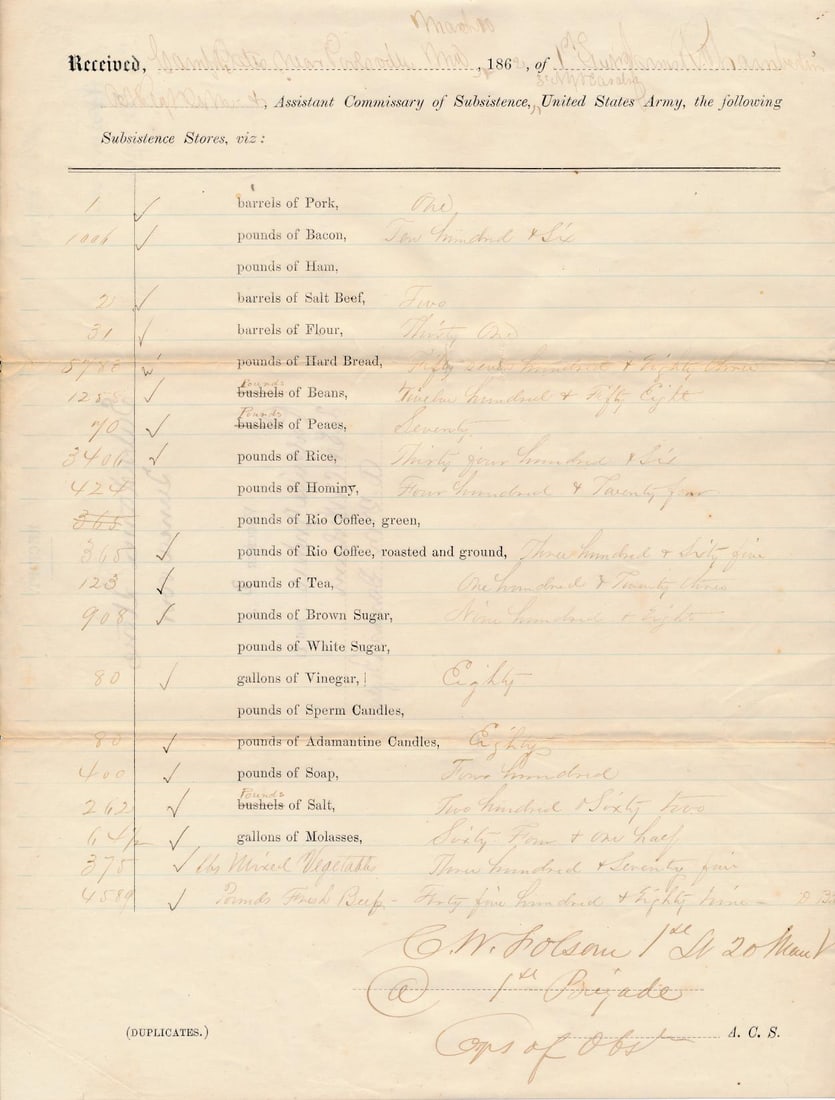 March
Received, Camp near Md , 186 , of 1st Lieut
, Assistant Commissary of Subsistence, United States Army, the following
Subsistence Stores, viz:
1 barrels of Pork, One
1006 pounds of Bacon, Ten hundred & Six
pounds of Ham,
2 barrels of Salt Beef, Two
31 barrels of Flour, Thirty One
5783 pounds of Hard Bread, Fifty seven hundred & Eighty three
1258 Pounds bushels of Beans, Twelve hundred & Fifty Eight
70 Pounds bushels of Peaes, Seventy
3406 pounds of Rice, Thirty four hundred & Six
424 pounds of Hominy, Four hundred & Twenty four
365 pounds of Rio Coffee, green,
365 pounds of Rio Coffee, roasted and ground, Three hundred & Sixty five
123 pounds of Tea, One hundred & Twenty three
908 pounds of Brown Sugar, Nine hundred & Eight
pounds of White Sugar,
80 gallons of Vinegar, Eighty
pounds of Sperm Candles,
80 pounds of Adamantine Candles, Eighty
400 pounds of Soap, Four hundred
262 Pounds bushels of Salt, Two hundred & Sixty two
64½ gallons of Molasses, Sixty Four & one half
375 lbs Mixed Vegetables Three hundred & Seventy five
4589 Pounds Fresh Beef - Forty five hundred & Eighty nine -
C. W. Folsom 1st Lt 20 Mass V
1st Brigade
(DUPLICATES.) Cps of Obst A. C. S.